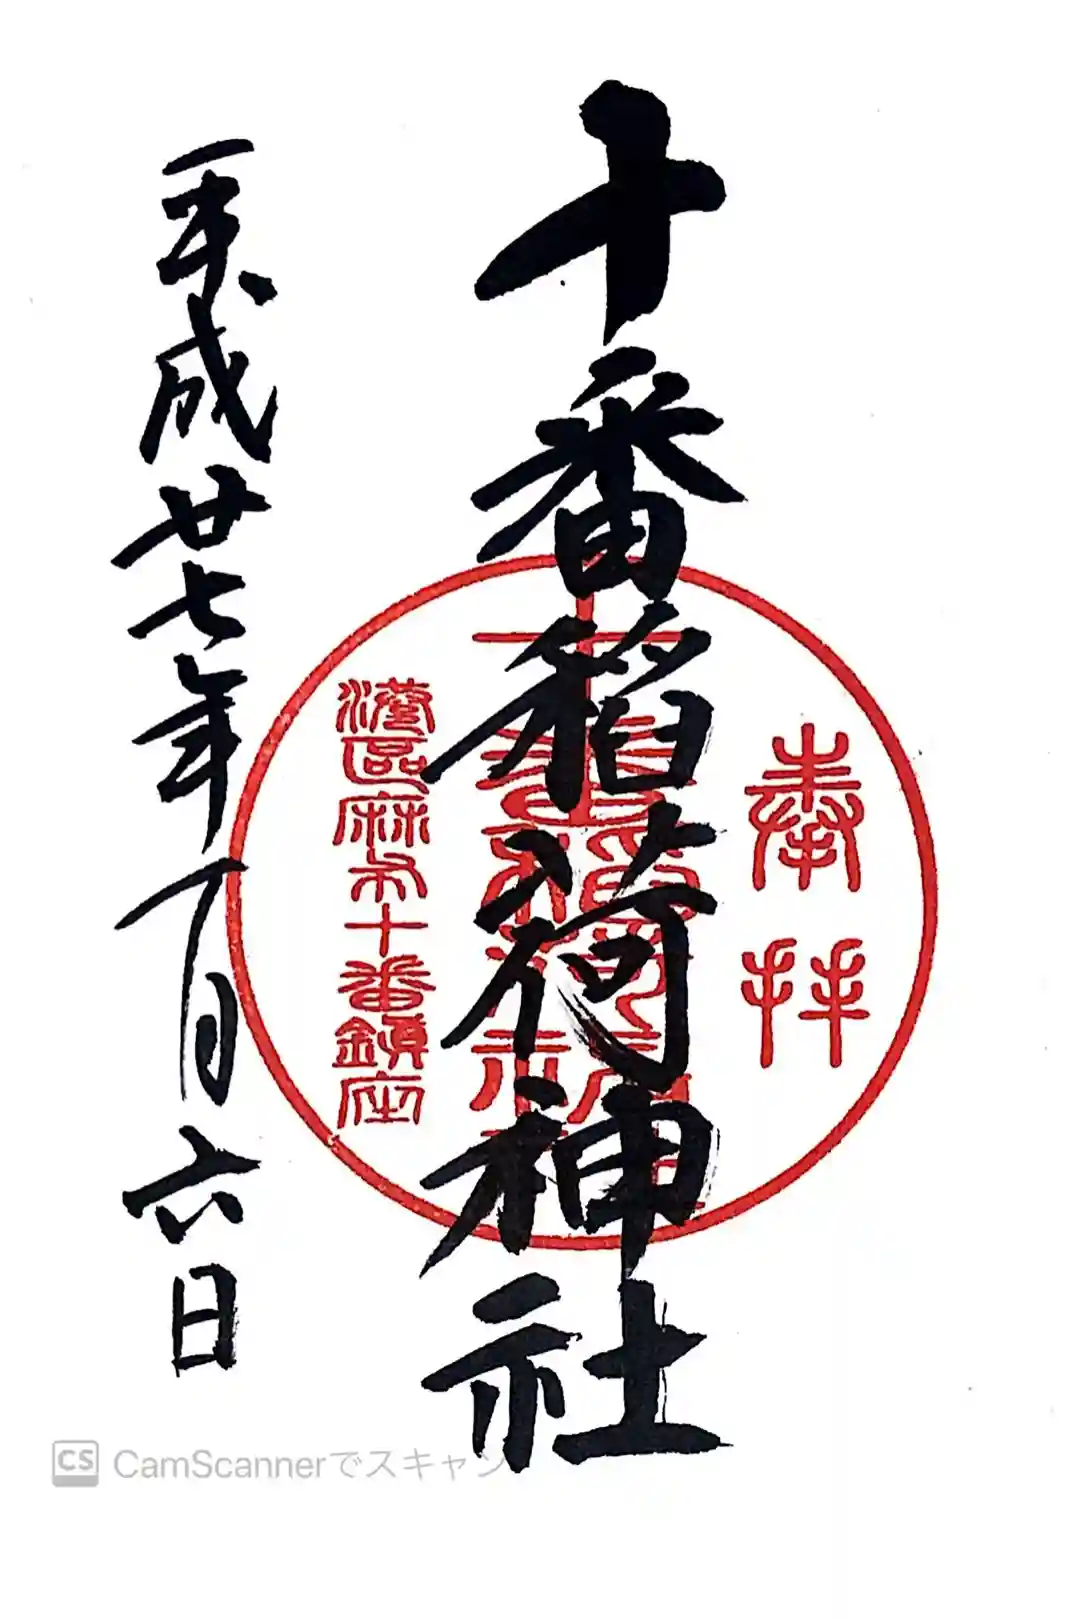 奉拝
十番稲荷神社
港區麻布十番鎮座
平成廿七年一月六日
CS CamScannerでスキャン